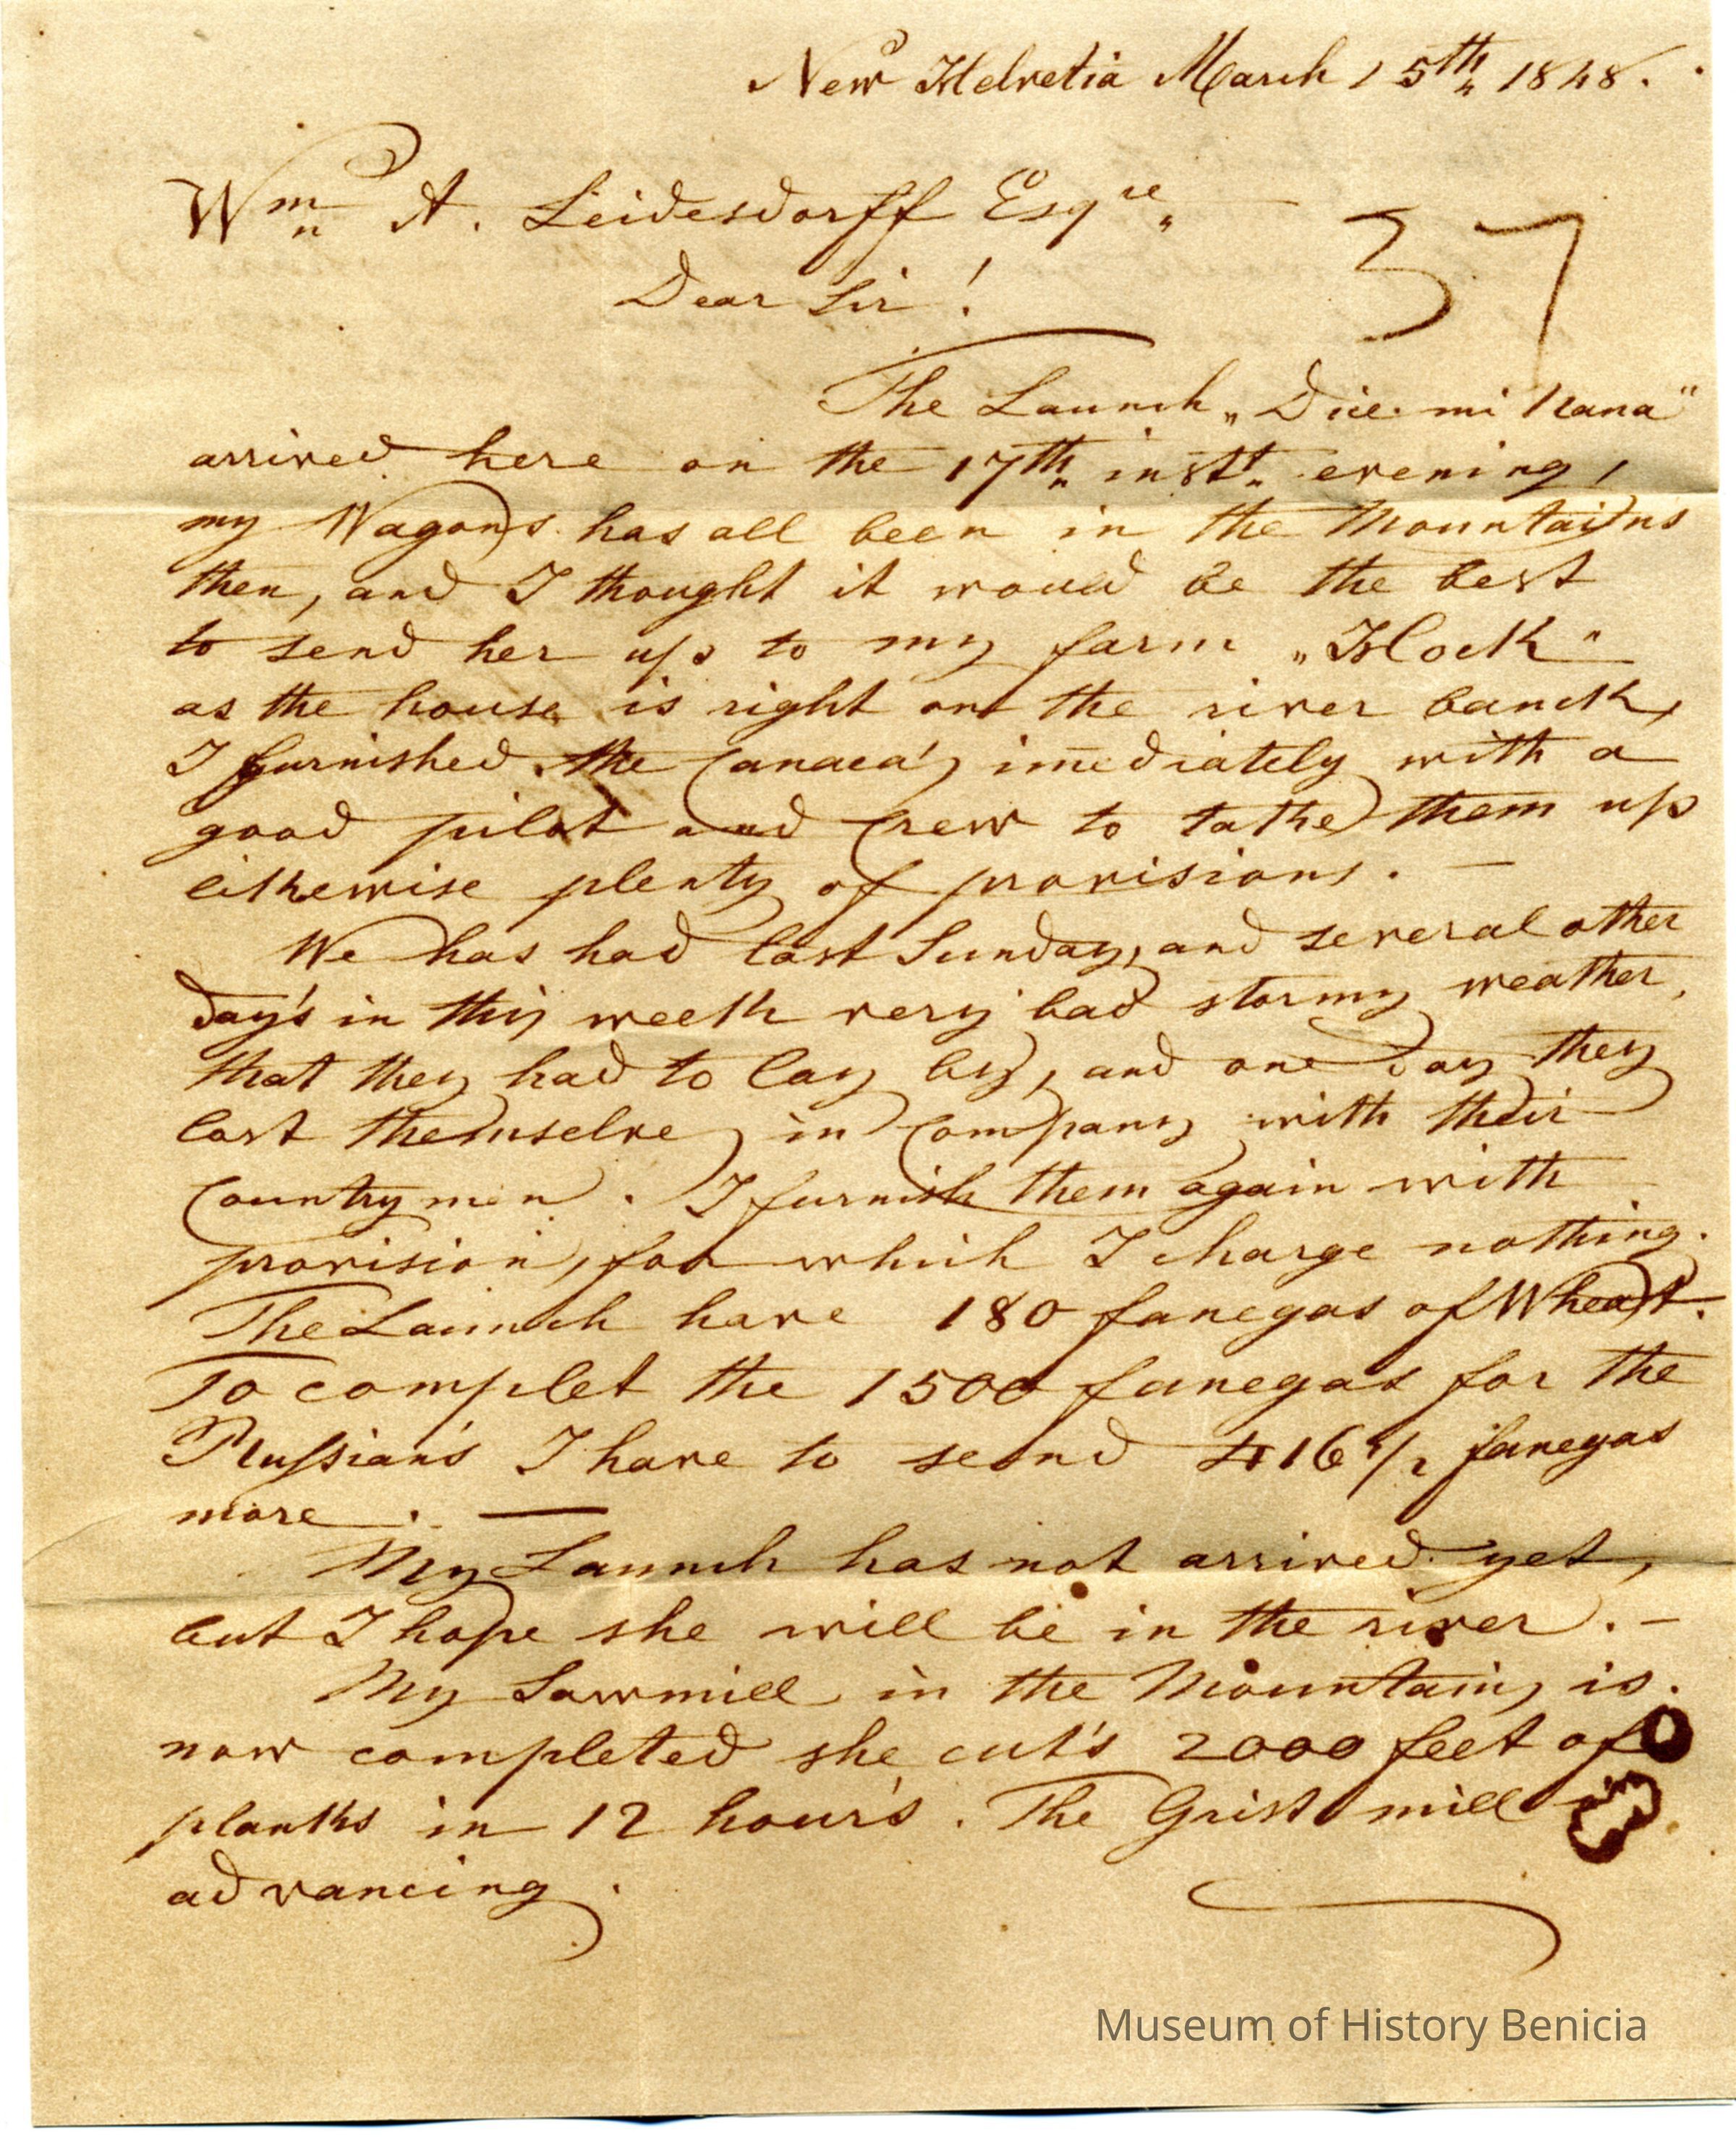 New Helvetia March 15th 1848.
Wm A. Leidesdorff Esqre
37
Dear Sir!
The Launch „Dice mi Nana"
arrived here on the 17th inst. evening,
my Wagons has all been in the Mountains
then, and I thought it would be the best
to send her up to my farm „Hock"
as the house is right on the river banck,
I furnished the Canaca's imediately with a
good pilot and Crew to take them up
likewise plenty of provisions. —
We has had last Sunday, and several other
day's in this week very bad stormy weather,
that they had to lay by, and one day they
lost themselves in Company with their
Countrymen. I furnish them again with
provision, for which I charge nothing.
The Launch have 180 fanegas of Wheat.
To complet the 1500 fanegas for the
Russian's I have to send 416 1/2 fanegas
more. —
My Launch has not arrived yet,
but I hope she will be in the river. —
My Sawmill in the Mountains is
now completed she cut's 2000 feet of
planks in 12 hour's. The Grist mill is
advancing.
Museum of History Benicia